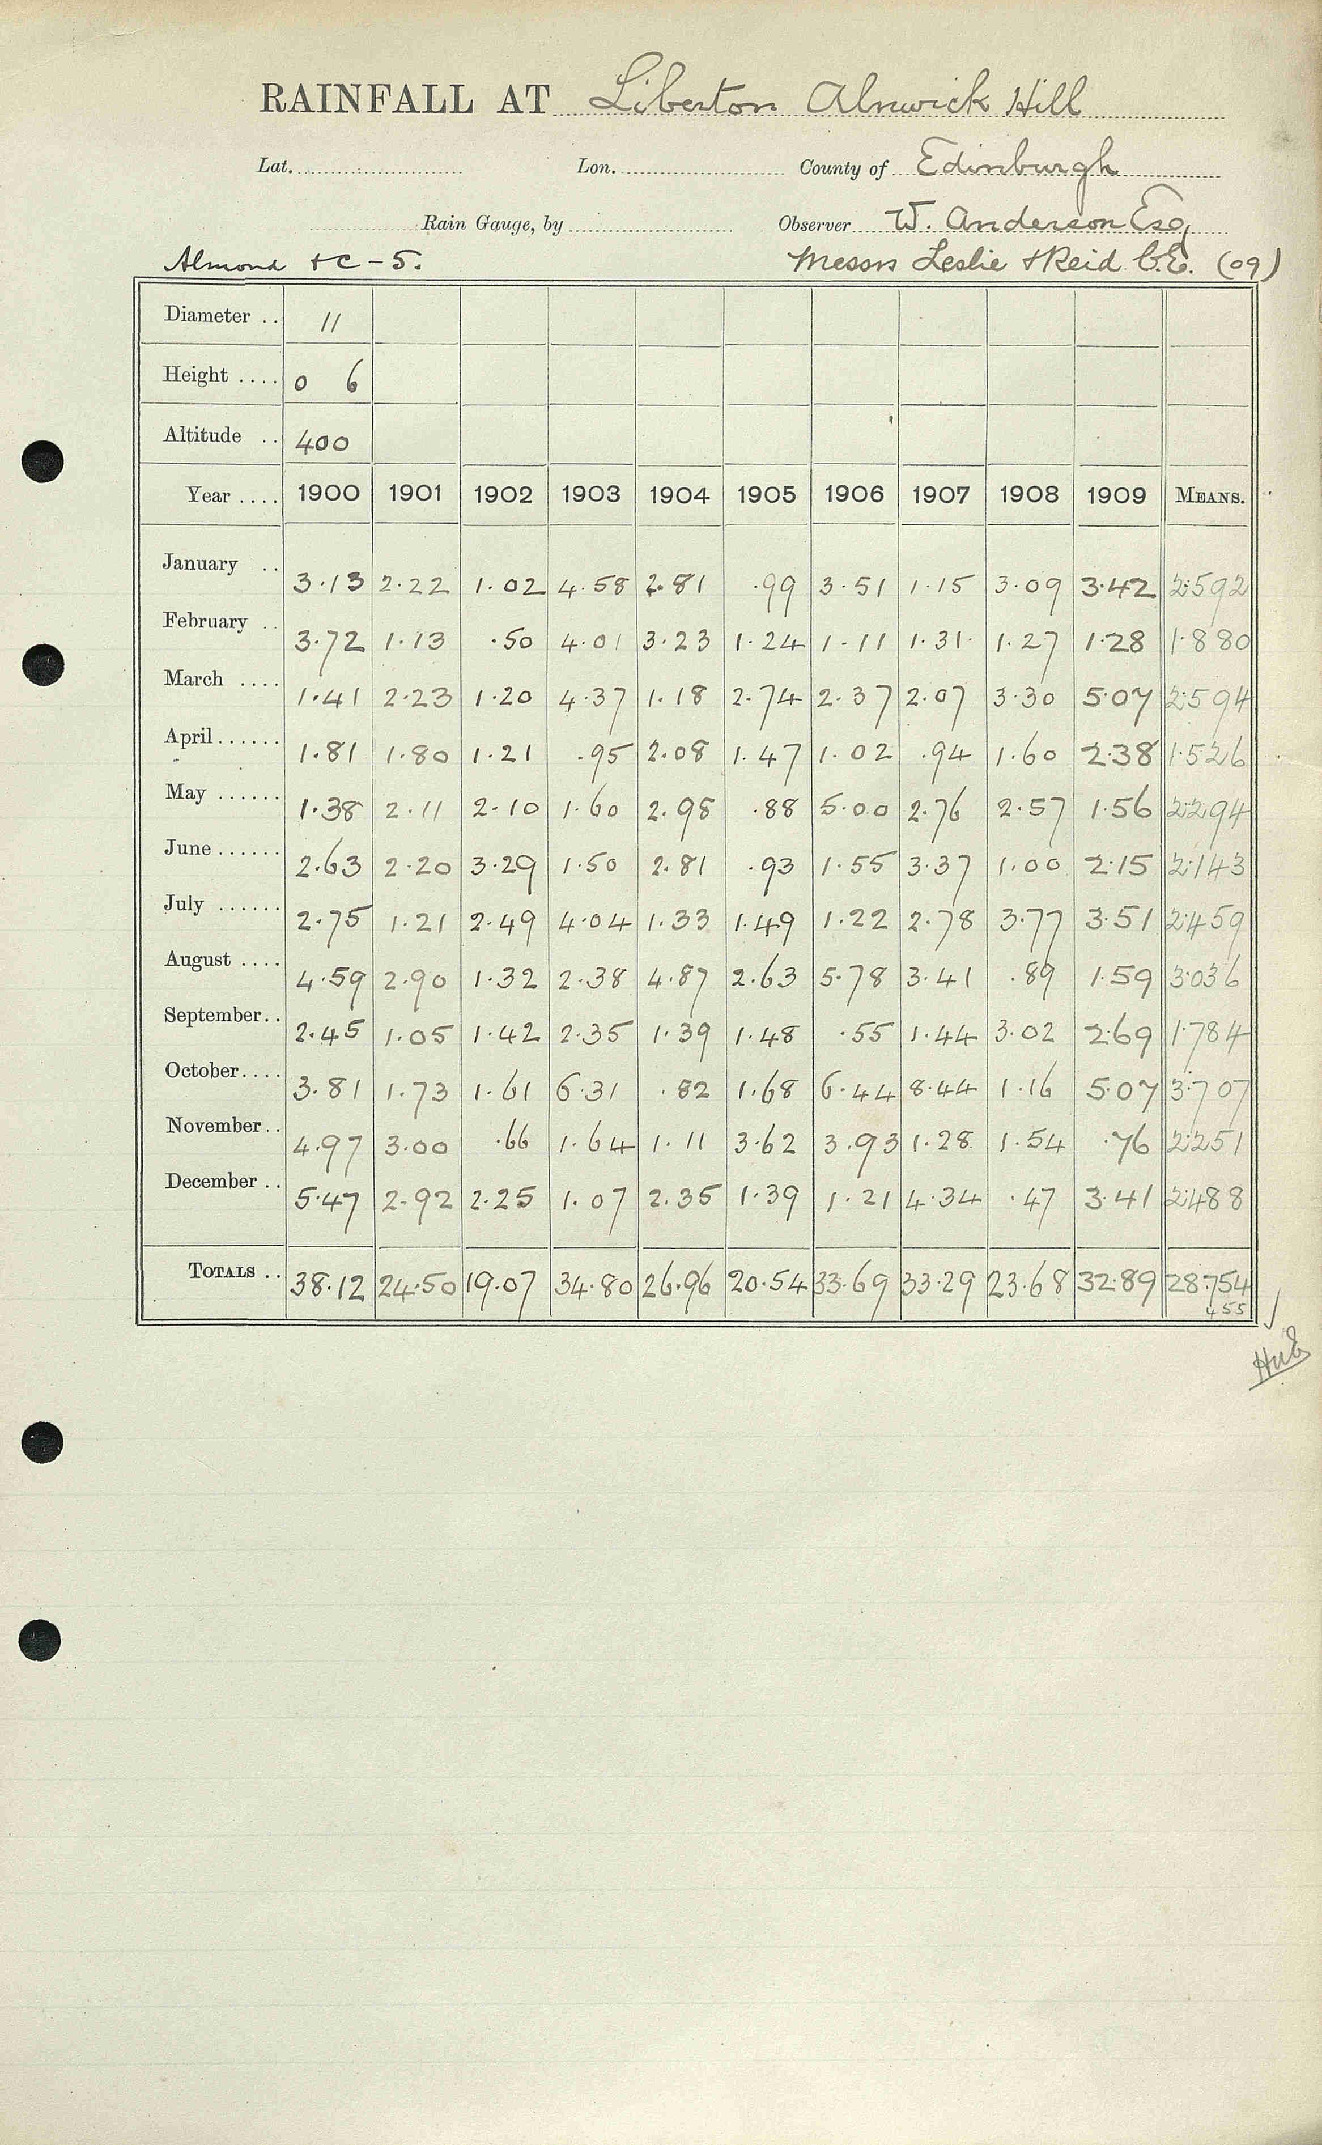 RAINFALL AT Liberton Alnwick Hill
Lat. Lon. County of Edinburgh
Rain Gauge, by Observer W. Anderson Esq
Almond &c - 5. Messrs Leslie & Reid C.E. (09)
Diameter .. 11
Height .... 0 6
Altitude .. 400
Year .... 1900 1901 1902 1903 1904 1905 1906 1907 1908 1909 MEANS.
January .. 3.13 2.22 1.02 4.58 2.81 .99 3.51 1.15 3.09 3.42 2.592
February .. 3.72 1.13 .50 4.01 3.23 1.24 1.11 1.31 1.27 1.28 1.880
March .... 1.41 2.23 1.20 4.37 1.18 2.74 2.37 2.07 3.30 5.07 2.594
April...... 1.81 1.80 1.21 .95 2.08 1.47 1.02 .94 1.60 2.38 1.526
May ...... 1.38 2.11 2.10 1.60 2.98 .88 5.00 2.76 2.57 1.56 2.294
June ...... 2.63 2.20 3.29 1.50 2.81 .93 1.55 3.37 1.00 2.15 2.143
July ...... 2.75 1.21 2.49 4.04 1.33 1.49 1.22 2.78 3.77 3.51 2.459
August .... 4.59 2.90 1.32 2.38 4.87 2.63 5.78 3.41 .89 1.59 3.036
September.. 2.45 1.05 1.42 2.35 1.39 1.48 .55 1.44 3.02 2.69 1.784
October.... 3.81 1.73 1.61 6.31 .82 1.68 6.44 8.44 1.16 5.07 3.707
November.. 4.97 3.00 .66 1.64 1.11 3.62 3.93 1.28 1.54 .76 2.251
December .. 5.47 2.92 2.25 1.07 2.35 1.39 1.21 4.34 .47 3.41 2.488
TOTALS .. 38.12 24.50 19.07 34.80 26.96 20.54 33.69 33.29 23.68 32.89 28.754
455